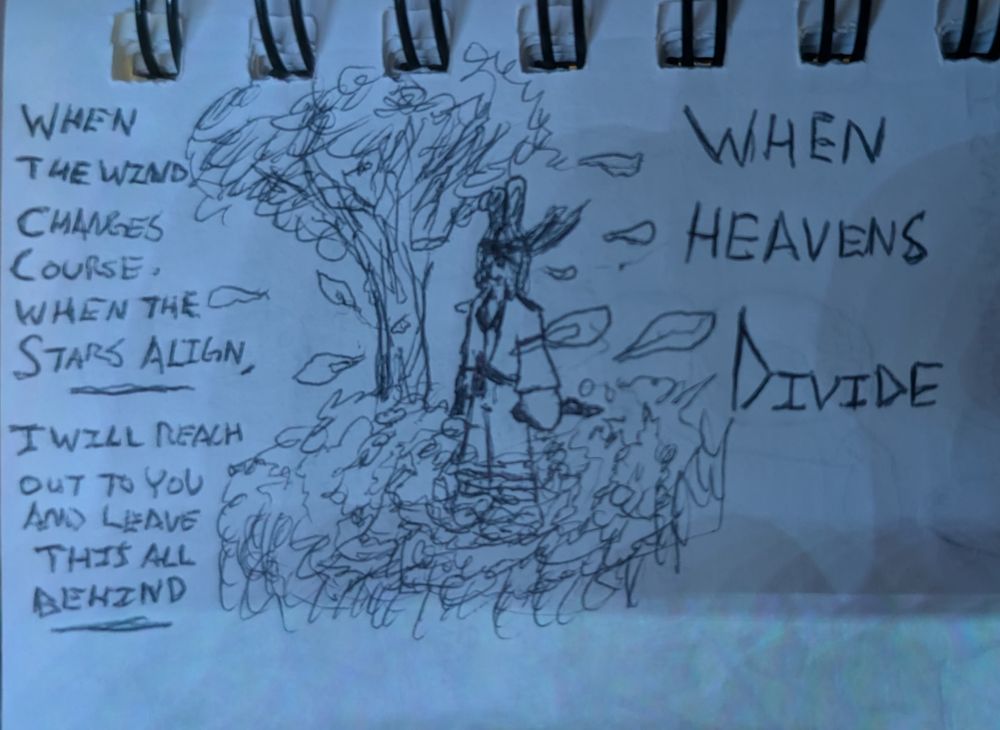 WHEN
THE WIND
CHANGES
COURSE.
WHEN THE
STARS ALIGN,
I WILL REACH
OUT TO YOU
AND LEAVE
THIS ALL
BEHIND
WHEN
HEAVENS
DIVIDE